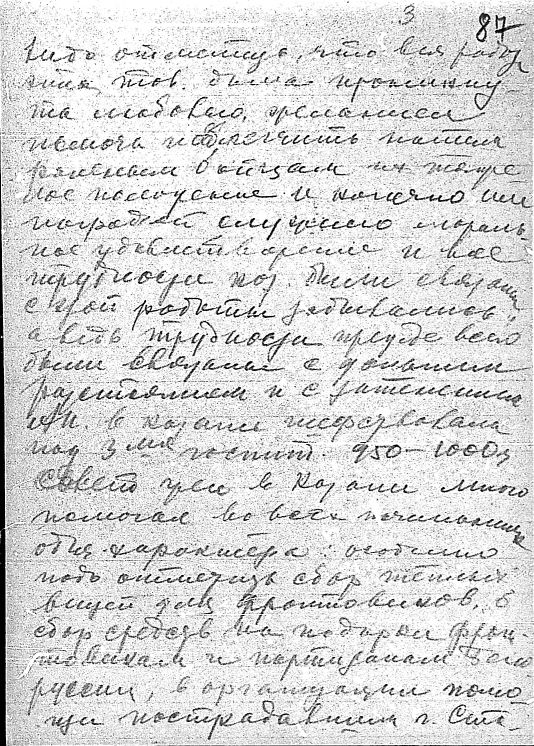 3
87
надо отметить, что вся рабо
эта тов. была проникну-
та любовью, желанием
помочь и облегчить нашим
раненым бойцам их тяже
лое положение и конечно им
наградой служило мораль-
ное удовлетворение и все
трудности кот. были связаны
с этой работы забывались,
а ведь трудности прежде всего
были связаны с дальним
расстоянием и с затемнением
АН. в Казани шефствовала
над 3 мя госпит. 950-1000
Совет жен в Казани много
помогал во всех начинаниях
общ. характера: особенно
надо отметить сбор тёплых
вещей для фронтовиков,
сбор средств на подарки фрон-
товикам и партизанам Бело
руссии, в организации помо-
щи пострадавшим г. Ста-